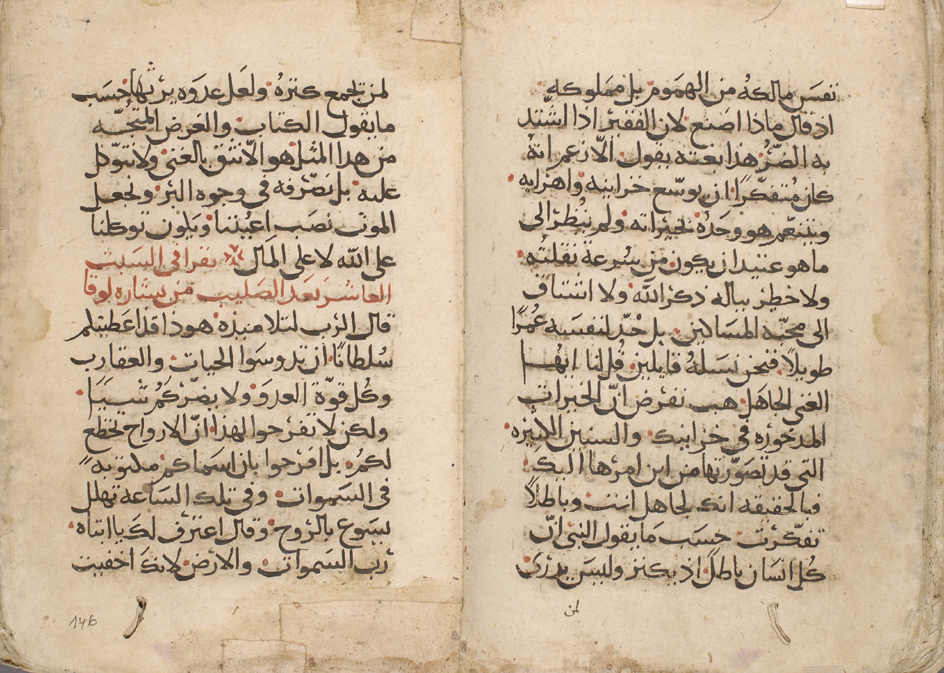 نفس مالكه من الهموم بل مملوكه
اذ قال ماذا اصنع لان الفقير اذا اشتد
به الضر هذا بعته يقول الا زعم انه
كان متفكرا ان يوسع خزاينه واهرايه
ويتنعم هو وحده بخيراته ولم ينظر الى
ما هو عتيد ان يكون من سرعة نقلته
ولا خطر بباله ذكر الله ولا اشتاق
الى محبة المساكين بل حدد لنفسه عمرا
طويلا فنحن نسله قايلين قل لنا ايها
الغني الجاهل هب نفرض ان الخيرات
المدخوره في خزاينك والسنين الكثيره
التي قد تصورتها من اين امرها اليك
فبالحقيقه انك لجاهل انت وباطلا
تفكرت حسب ما يقول النبي ان
كل انسان باطل اذ يكنز وليس يدري
لمن
لمن تجمع كنزه ولعل عدوه يرثها حسب
ما يقول الكتاب والغرض المتجه
من هذا المثل هو الا نثق بالغنى ولا نتوكل
عليه بل نصرفه في وجوه البر ونجعل
الموت نصب اعيننا ويكون توكلنا
على الله لا على المال يقرا في السبت
العاشر بعد الصليب من بشاره لوقا
قال الرب لتلاميذه هوذا قد اعطيتكم
سلطانا ان تدوسوا الحيات والعقارب
وكل قوة العدو ولا يضركم شييا
ولكن لا تفرحوا بهذا ان الارواح تخضع
لكم بل افرحوا بان اسماكم مكتوبه
في السموات وفي تلك الساعه تهلل
يسوع بالروح وقال اعترف لك يا ابتاه
رب السموات والارض لانك اخفيت
146